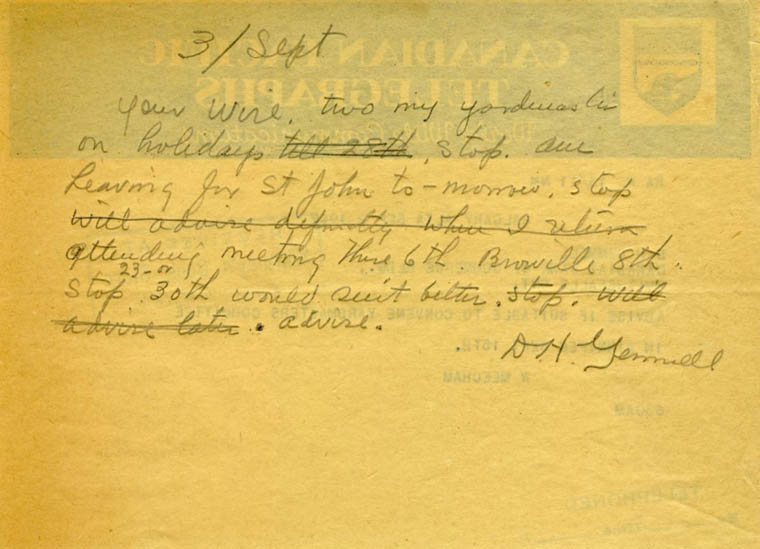 3/Sept
Your wire, two my yardmasters
on holidays till 28th, stop. am
leaving for St John to-morrow. stop
will advise definitely when I return
attending meeting there 6th. Brownville 8th.
23 or
stop. 30th would suit better. stop. will
advise later. advise.
D.H. Gemmell
CANADIAN PACIFIC
TELEGRAPHS
World Wide Communications
ADVISE IF SUITABLE TO CONVENE YARDMASTERS COMMITTEE
16TH.
N MEECHAM
630AM
TELEPHONED